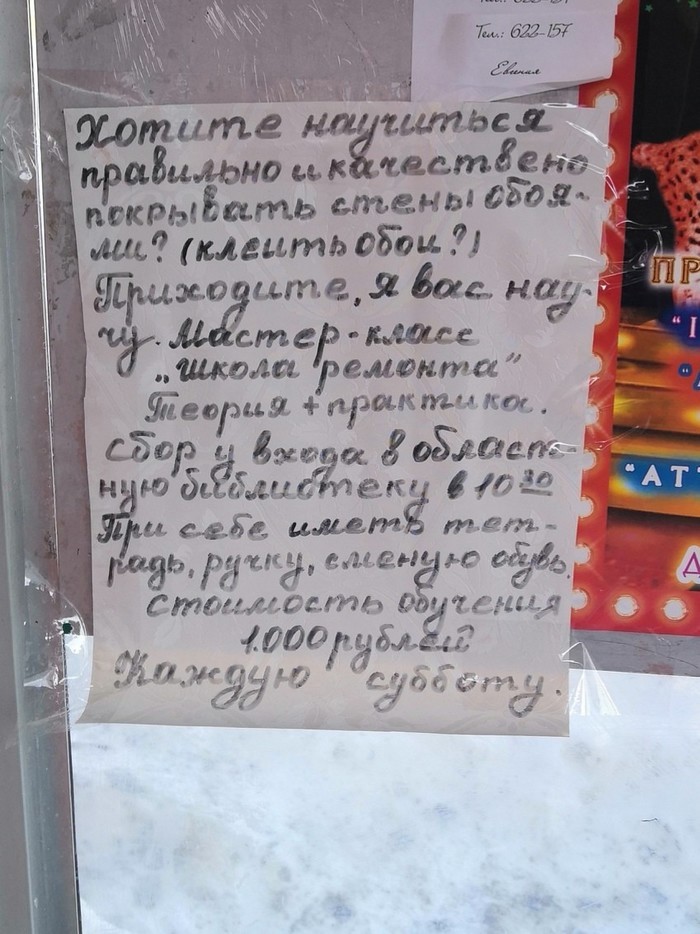 Тел.: 622-157
Евгения
Хотите научиться
правильно и качествено
покрывать стены обоя-
ми? (клеить обои?)
Приходите, я вас нау-
чу. Мастер-класс
„школа ремонта”
Теория + практика.
Сбор у входа в област-
ную библиотеку в 10 30
При себе иметь тет-
радь, ручку, сменую обувь.
Стоимость обучения
1.000 рублей
Каждую субботу.
ПР
“АТ